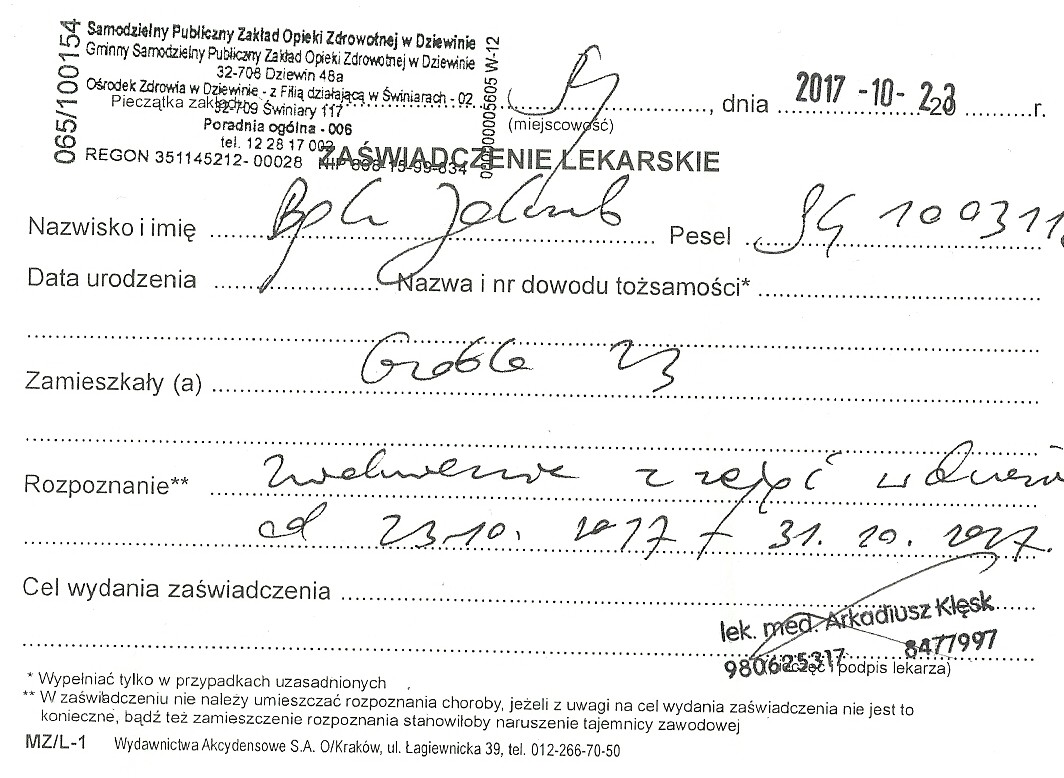 065/100154
Samodzielny Publiczny Zakład Opieki Zdrowotnej w Dziewinie
Gminny Samodzielny Publiczny Zakład Opieki Zdrowotnej w Dziewinie
32-708 Dziewin 48a
Ośrodek Zdrowia w Dziewinie - z Filią działającą w Świniarach - 02
Pieczątka zakładu 32-709 Świniary 117
Poradnia ogólna - 006
tel. 12 28 17 002
REGON 351145212- 00028
(miejscowość)
, dnia 2017 -10- 23 r.
ZAŚWIADCZENIE LEKARSKIE
Nazwisko i imię Jakub Pesel
Data urodzenia Nazwa i nr dowodu tożsamości*
Zamieszkały (a) Grobla 23
Rozpoznanie** zwolnienie z zajęć w dniu
od 23.10. 2017 + 31. 10. 2017.
Cel wydania zaświadczenia
lek. med. Arkadiusz Klęsk
980625317 8477997
podpis lekarza)
* Wypełniać tylko w przypadkach uzasadnionych
** W zaświadczeniu nie należy umieszczać rozpoznania choroby, jeżeli z uwagi na cel wydania zaświadczenia nie jest to
konieczne, bądź też zamieszczenie rozpoznania stanowiłoby naruszenie tajemnicy zawodowej
MZ/L-1 Wydawnictwa Akcydensowe S.A. O/Kraków, ul. Łagiewnicka 39, tel. 012-266-70-50